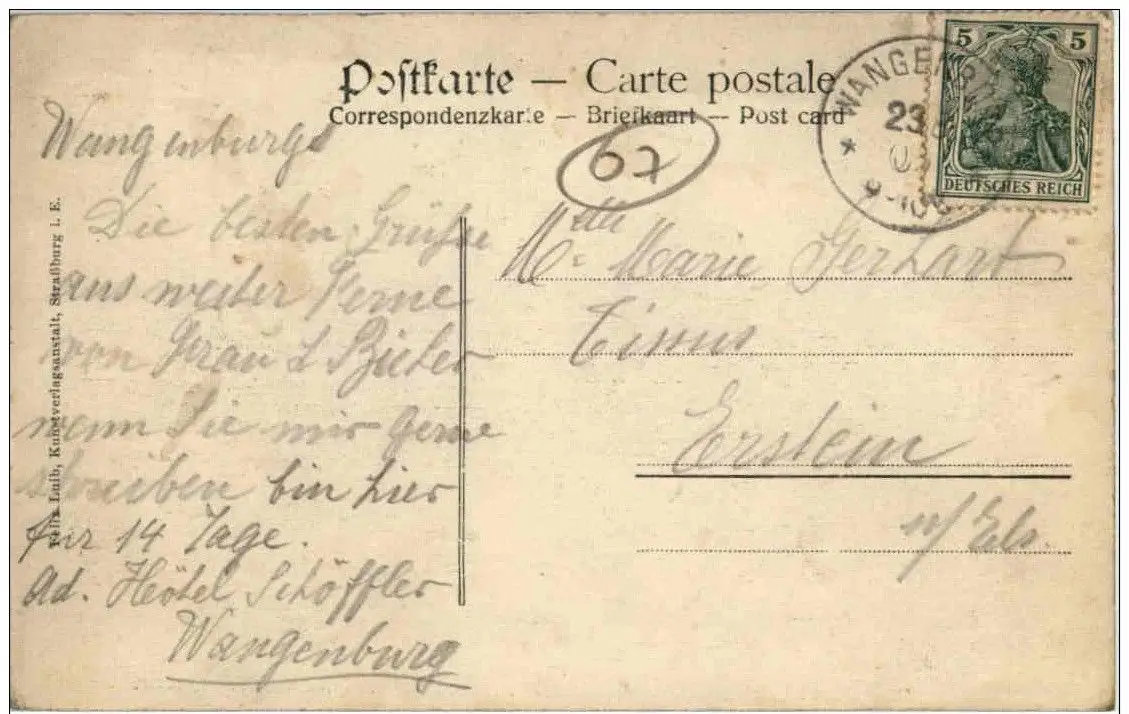 Postkarte — Carte postale
Correspondenzkarte — Briefkaart — Post card
67
WANGENB
23
5 5
DEUTSCHES REICH
Wangenburg
Die besten Grüsse
aus weiter Ferne
von Frau L Bieber
wenn Sie mir gerne
schreiben bin hier
für 14 Tage.
Ad. Hôtel Schöffler
Wangenburg
Mlle Marie Gerhart
Erstein
i/ Els.
Luib, Kunstverlagsanstalt, Straßburg i. E.